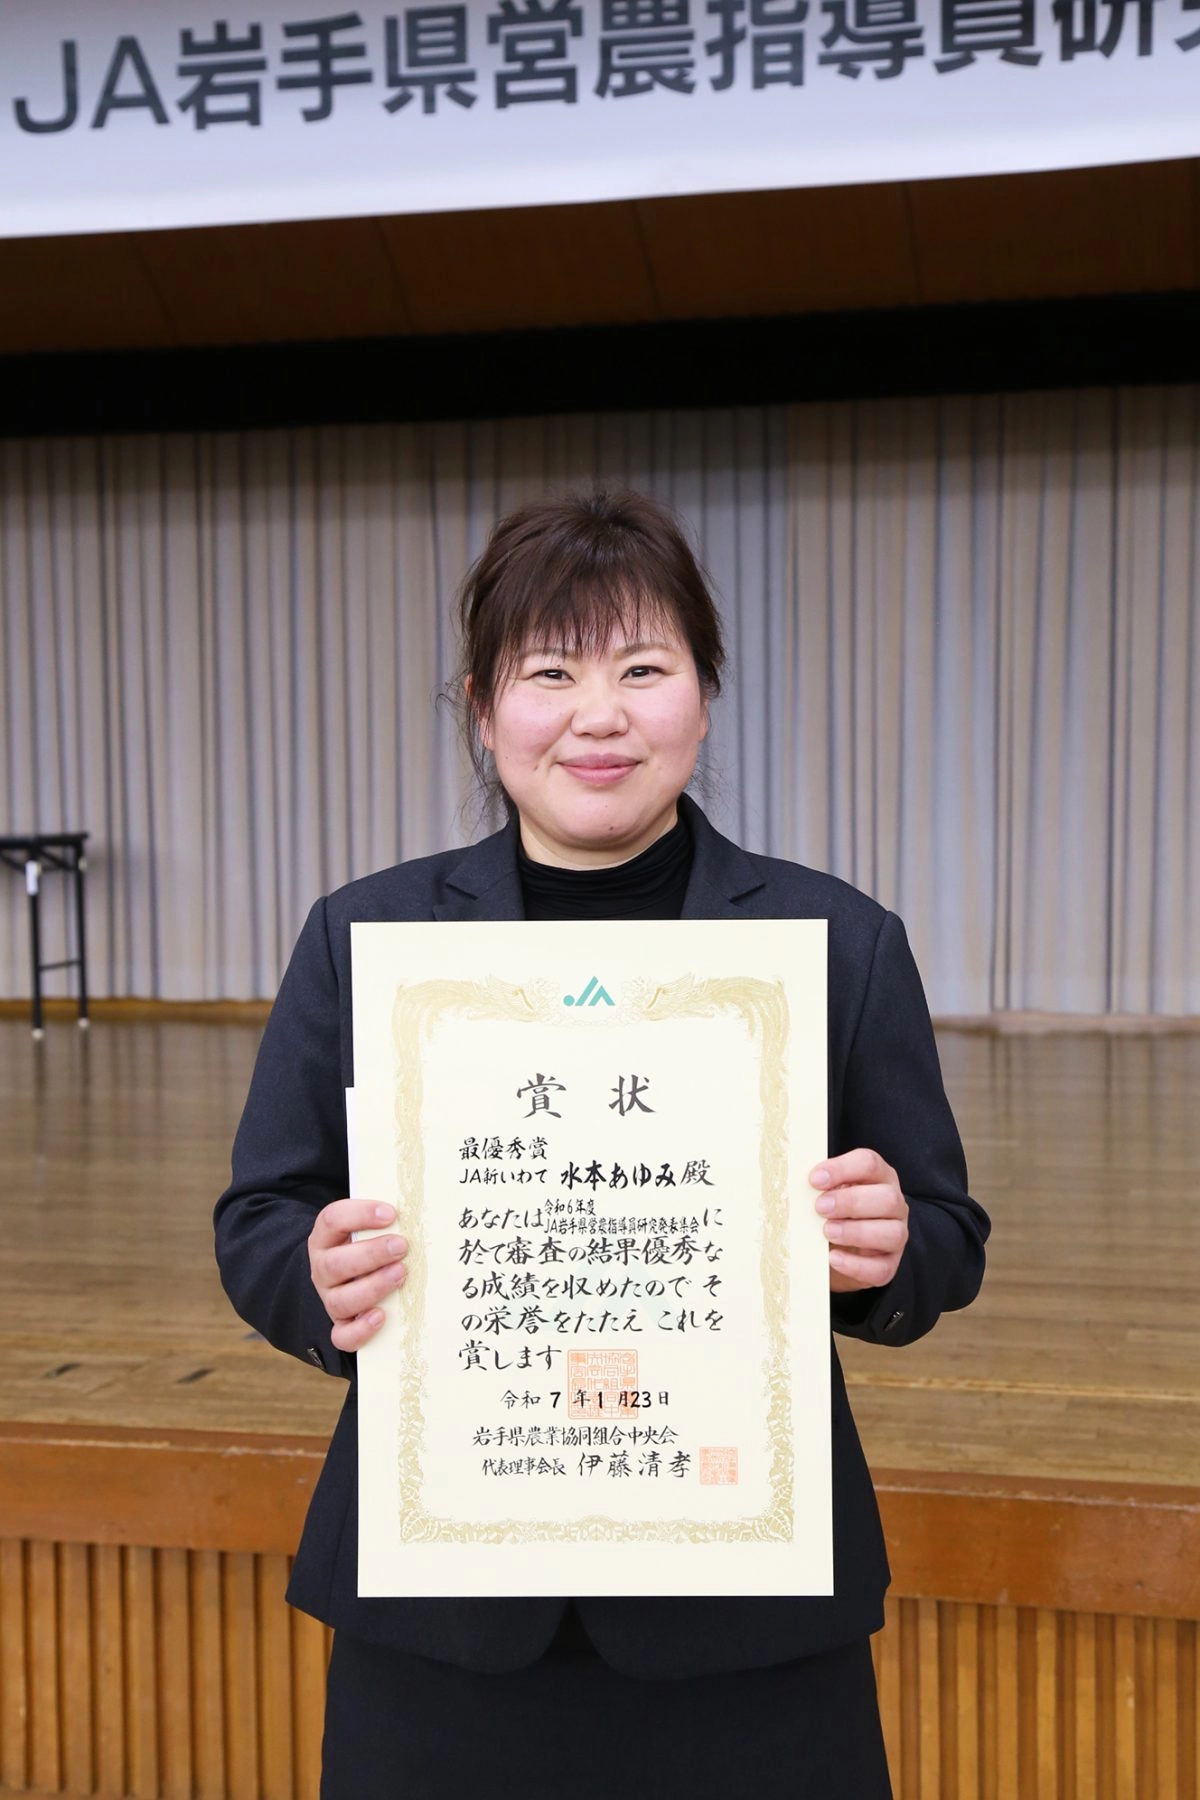 JA岩手県営農指導員研
JA
賞状
最優秀賞
JA新いわて 水本あゆみ殿
あなたは令和6年度
JA岩手県営農指導員研究発表集会に
於て審査の結果優秀な
る成績を収めたので そ
の栄誉をたたえ これを
賞します
令和 7 年 1 月23日
岩手県農業協同組合中央会
代表理事会長 伊藤清孝